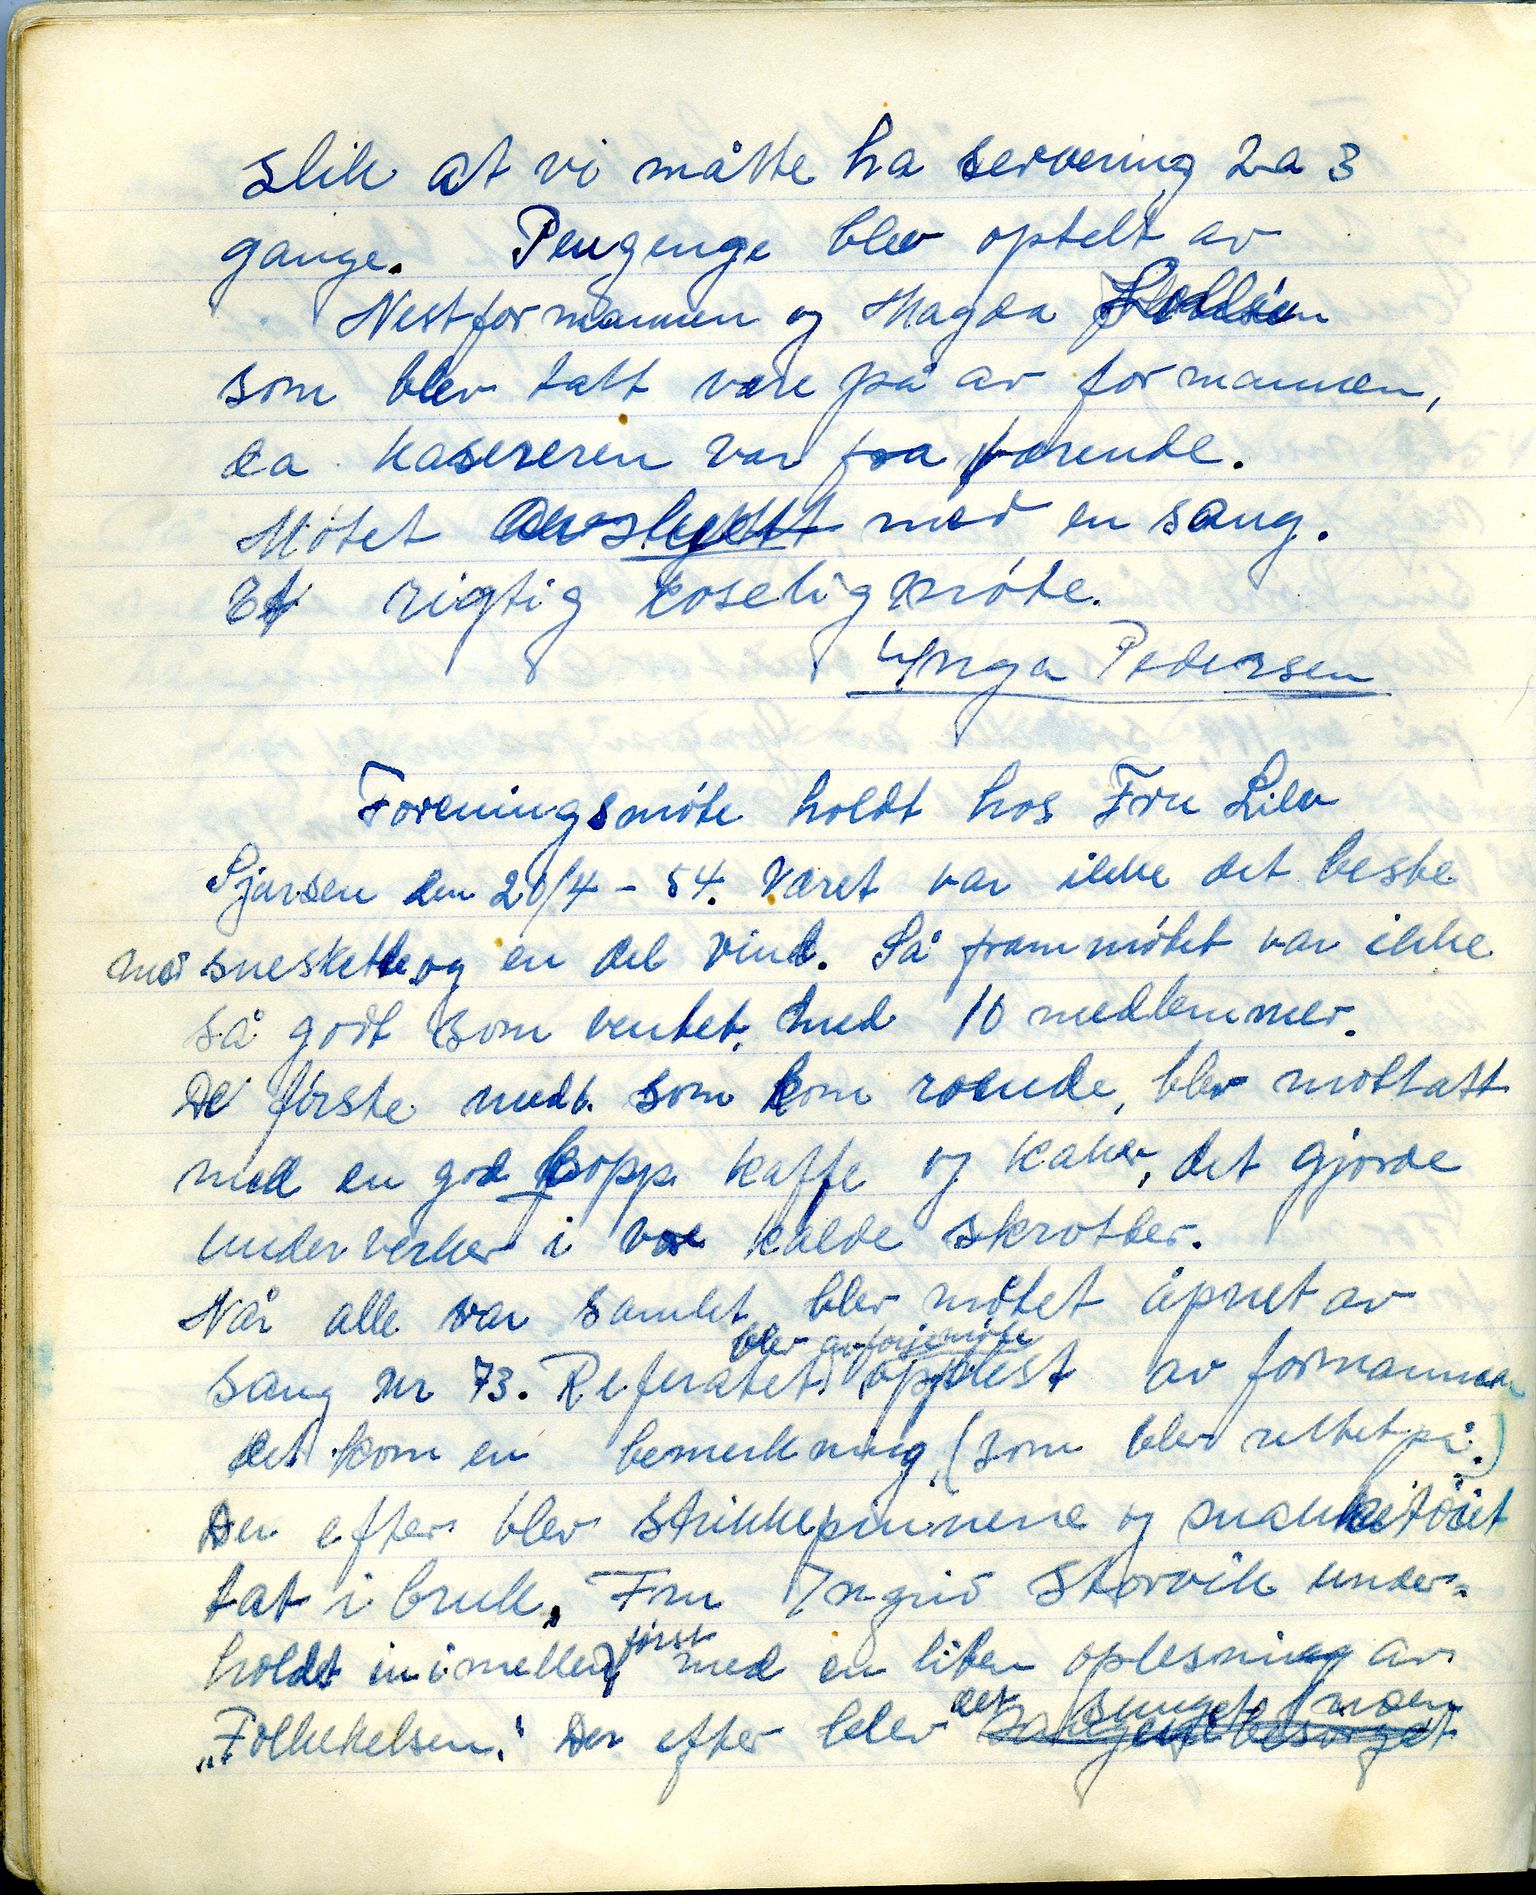 slik at vi måtte ha servering 2 a 3
gange. Pengenge blev optelt av
Nestformannen og Magda
som blev tatt vare på av formannen,
da kasereren var fra værende.
Møtet avsluttet med en sang.
Et rigtig koselig møte.
Ynga Pedersen
Foreningsmøte holdt hos Fru Lilv
den 20/4 - 54. Været var ikke det beste
med og en del vind. Så frammøtet var ikke
så godt som ventet, med 10 medlemmer.
De første medl. som kom roende, blev mottatt
med en god kopp kaffe og kaker, det gjorde
underverker i våre kalde skrotter.
Når alle var samlet blev møtet åpnet av
blev av forje møte
sang nr 73. Referatet opplest av formannen
det kom en bemerkning, (som blev rettet på.)
Der efter blev strikkepinnene og snakketöiet
tat i bruk. Fru Ingrid Storvik under-
først
holdt inimellem med en liten oplesning av
det sunget
„Folkehelsen." Der efter blev